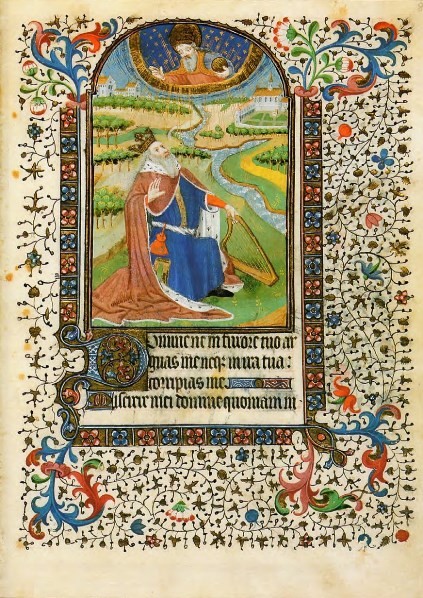 Domine ne in furore tuo ar
guas me neq; in ira tua:
corripias me
Miserere mei domine quoniam in